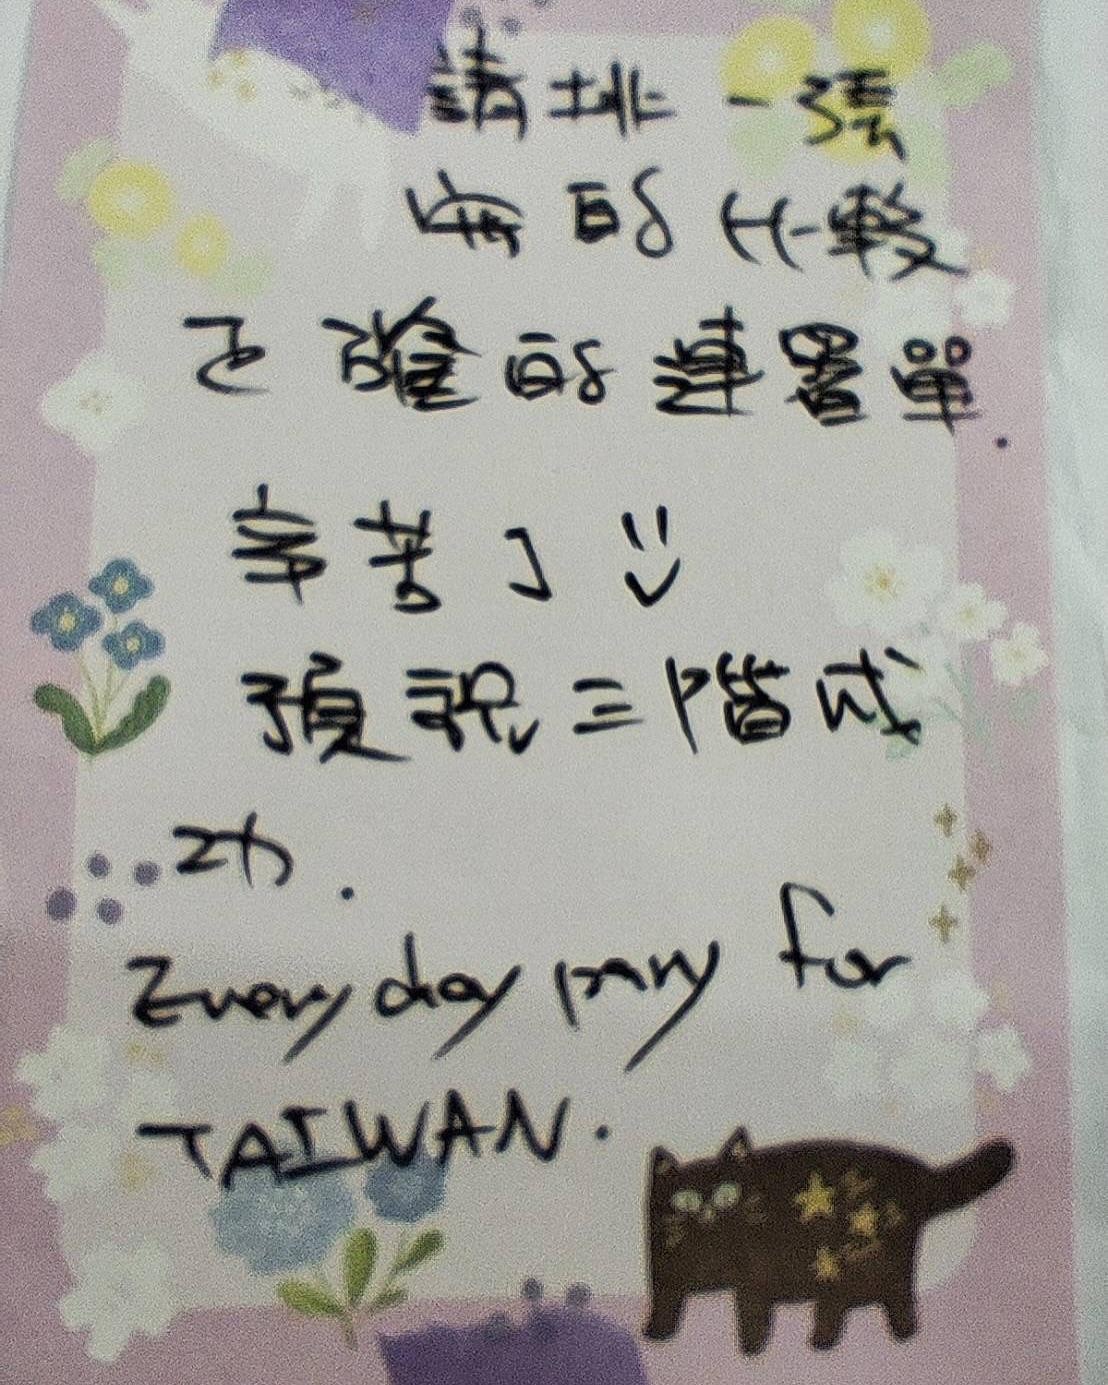 請挑一張
寫的比較
正確的連署單.
辛苦了
預祝三階成
功.
Every day pray for
TAIWAN.